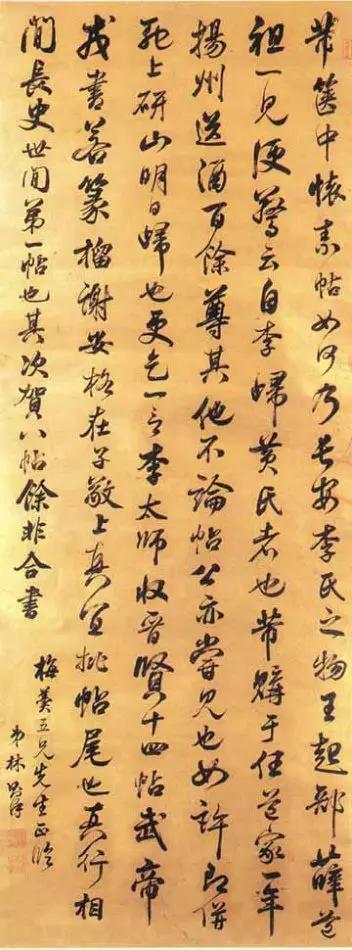 芾篋中懷素帖如何乃長安李氏之物王起部薛道
祖一見便驚云自李歸黃氏者也芾購于任道家一年
揚州送酒百餘尊其他不論帖公亦嘗見也如許即併
馳上研山明日歸也更乞一言李太師收晉賢十四帖武帝
戎書若篆籀謝安格在子敬上真宜批帖尾也真行相
間長史世間第一帖也其次賀八帖餘非合書
五兄先生正臨
弟林則徐